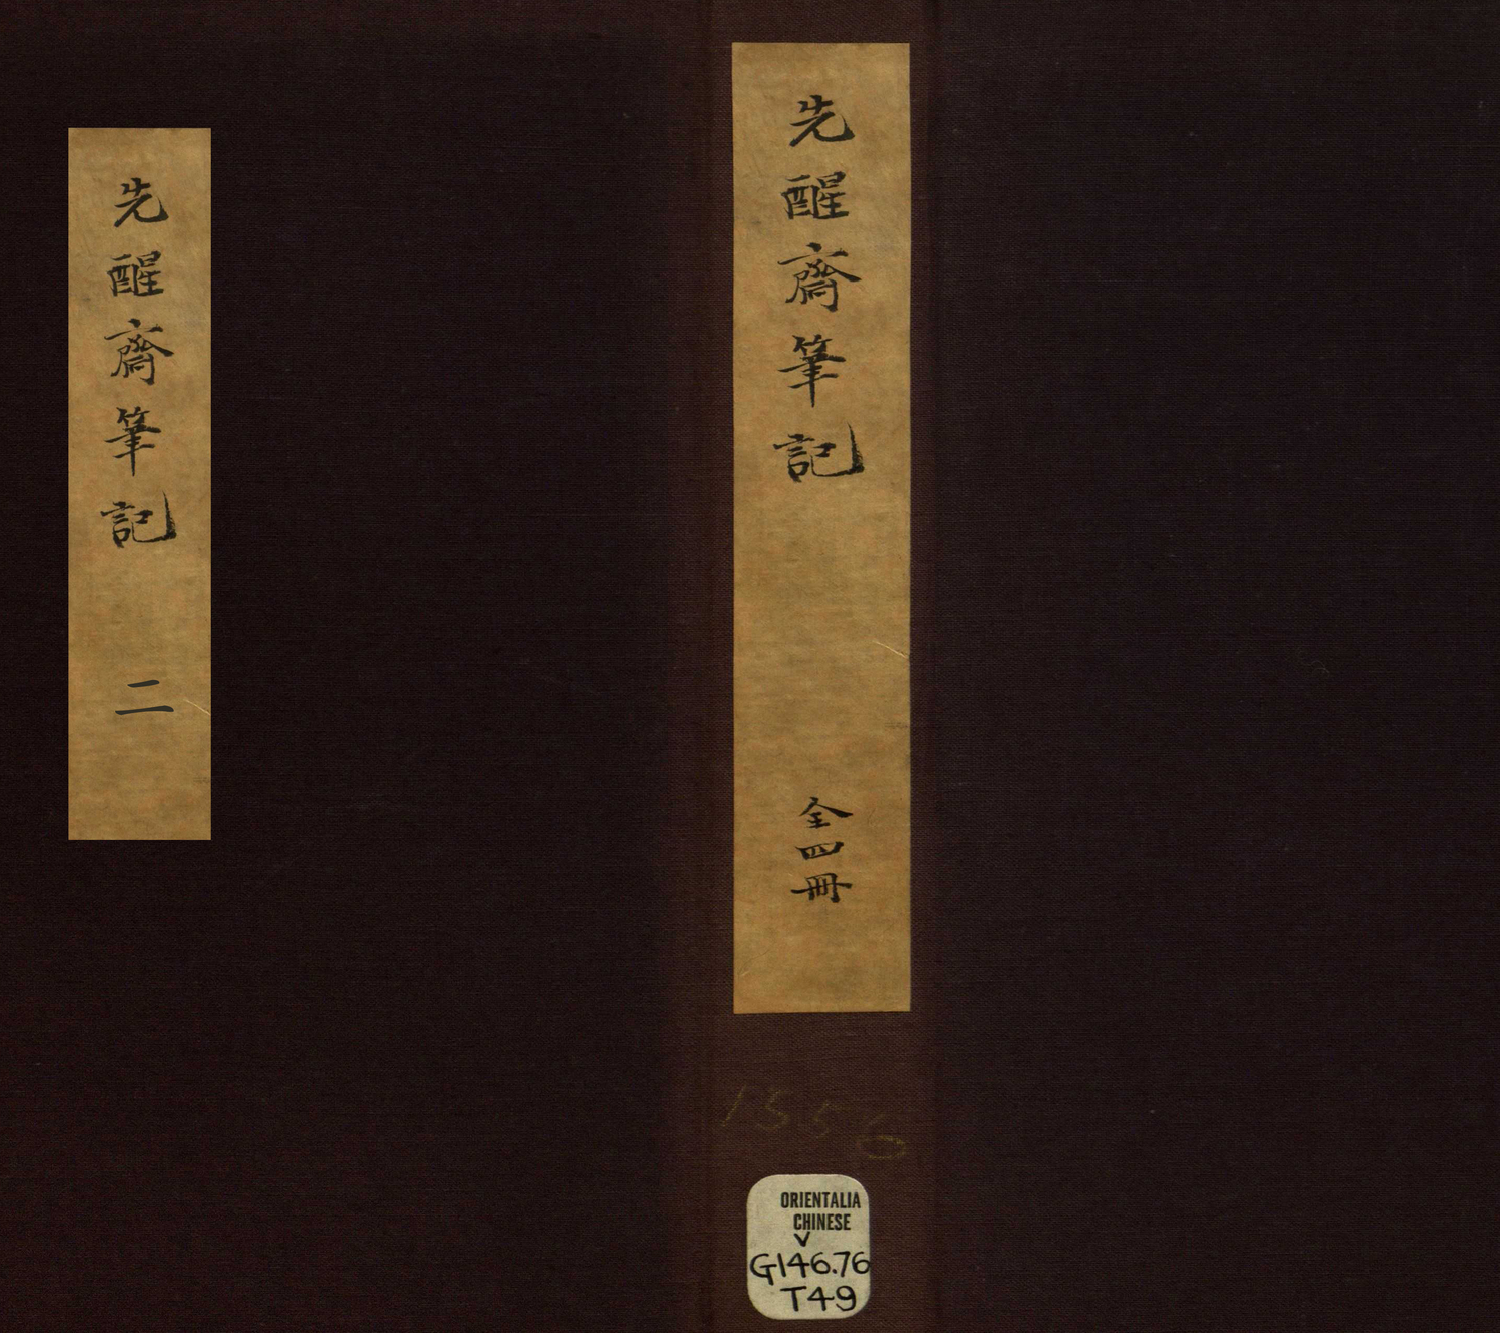 先醒齋筆記
全四冊
先醒齋筆記
二
1556
ORIENTALIA
CHINESE
V
G146.76
T49